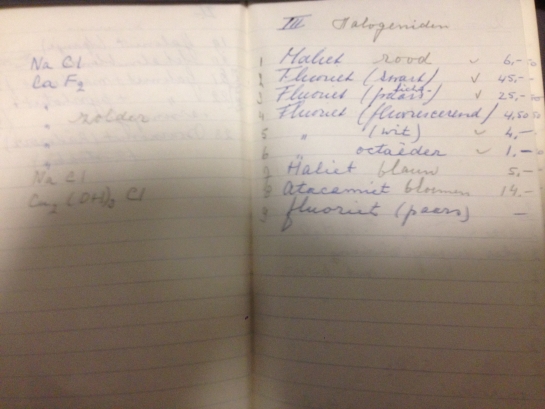 Na Cl
Ca F2
"
" zolder
"
"
Na Cl
Cu2 (OH)3 Cl
III Halogeniden
1 Haliet rood v 6,-
2 Fluoriet (zwart) v 45,-
3 Fluoriet (lichtpaars) v 25,-
4 Fluoriet (fluorescerend) 4,50
5 " (wit) v 4,-
6 " octaëder v 1,-
7 Haliet blauw 5,-
8 Atacamiet bloemen 14,-
9 fluoriet (paars) -